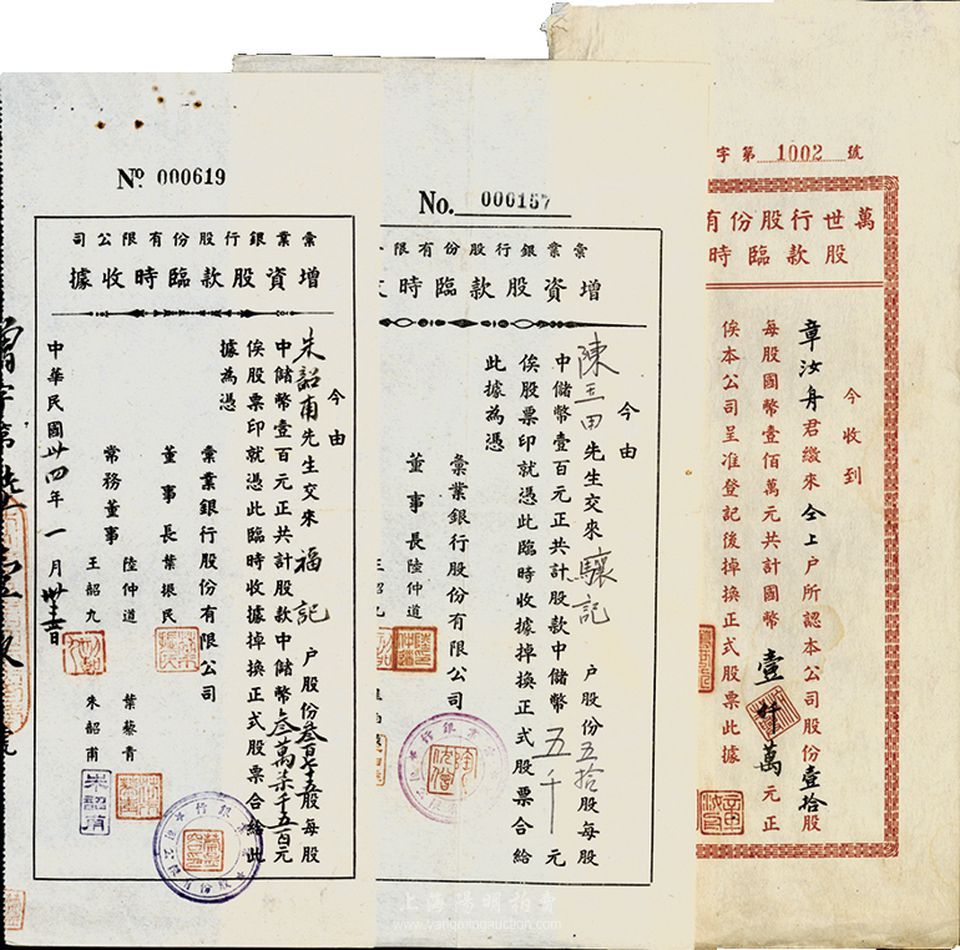 No. 000619
彙業銀行股份有限公司
增資股款臨時收據
今由
朱韶甫先生交來福記戶股份叁百七十五股每股
中儲幣壹百元正共計股款中儲幣叁萬柒千五百元
俟股票印就憑此臨時收據掉換正式股票合給此
據為憑
彙業銀行股份有限公司
董事長葉振民
常務董事
陸仲道
王韶九
葉藜青
朱韶甫
中華民國卅四年一月
No. 000157
彙業銀行股份有限
增資股款臨時
今由
陳玉田先生交來驤記戶股份五拾股每股
中儲幣壹百元正共計股款中儲幣五千元
俟股票印就憑此臨時收據掉換正式股票合給
此據為憑
彙業銀行股份有限公司
董事長陸仲道
王韶九
字第1002號
萬世行股份有
股款臨時
今收到
章汝舟君繳來仝上户所認本公司股份壹拾股
每股國幣壹佰萬元共計國幣壹仟萬元正
俟本公司呈准登記後掉換正式股票此據
上海陽明拍賣
www.yangmingauction.com